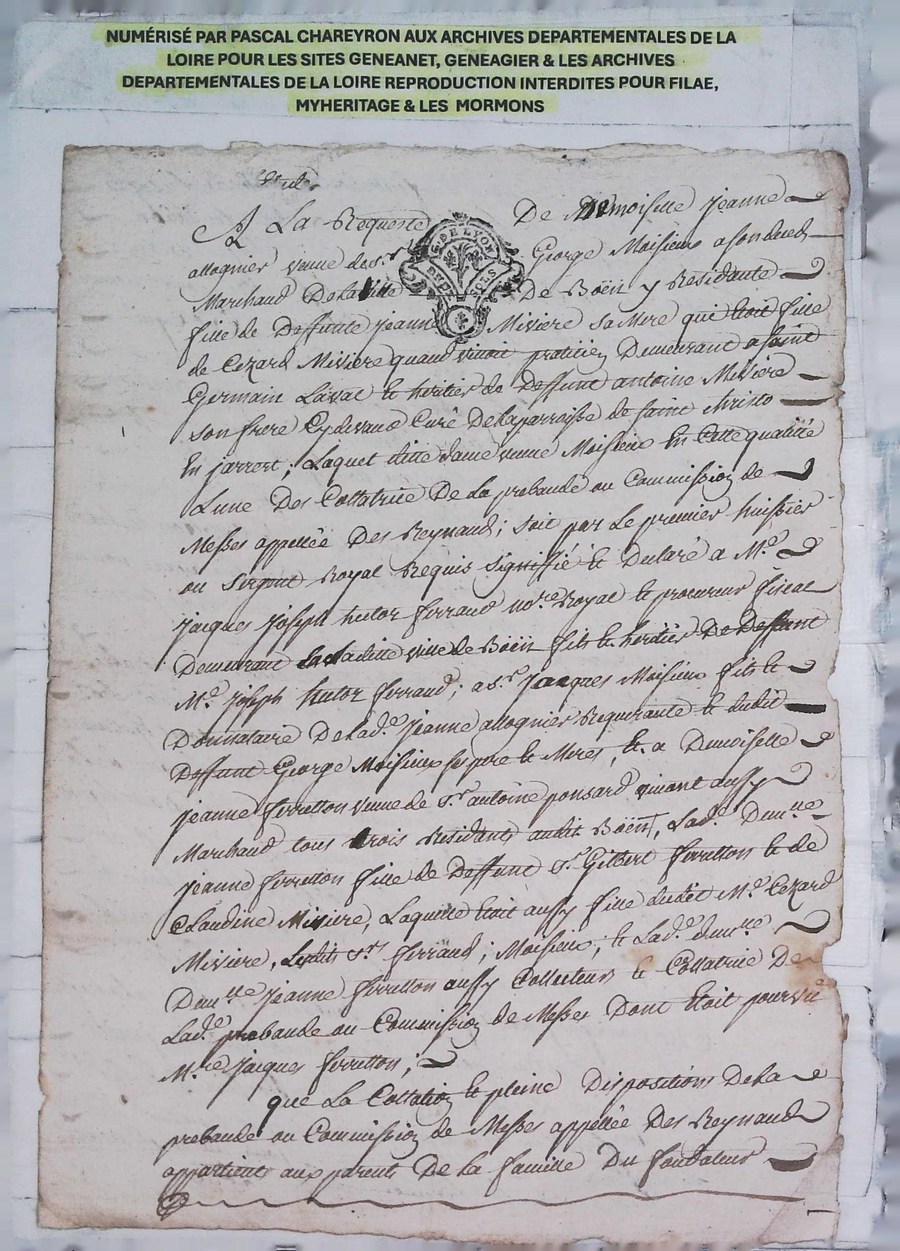 NUMÉRISÉ PAR PASCAL CHAREYRON AUX ARCHIVES DEPARTEMENTALES DE LA
LOIRE POUR LES SITES GENEANET, GENEAGIER & LES ARCHIVES
DEPARTEMENTALES DE LA LOIRE REPRODUCTION INTERDITES POUR FILAE,
MYHERITAGE & LES MORMONS
A La Requeste De Demoiselle jeanne
allognier veuve de s.r George Moisieux
G. DE LYON
DEUX SOLS
Marchand De la ville De Boën y Residante
fille de Deffunte jeanne Miviere sa Mere qui étoit fille
de Cezard Miviere quand vivoit praticien Demeurant a saint
Germain Laval et heritier de Deffunt antoine Miviere
son frere Cy devant Curé De la parroisse de saint Christo
En jarrest; Laquel ditte dame veuve Moisieux En Cette qualitté
Lune Des Collatrice De La prebande ou Commission de
Messes appellée Des Reynaud; soit par Le premier huissier
ou sergent Royal Requis signiffié et Declaré a M.e
jacques joseph hector ferrand no.re Royal et procureur fiscal
Demeurant en laditte ville de Boën fils et heritier De Deffunt
M.e joseph hector ferrand; a s.r jacques Moisieux fils et
Donnataire De lad.e jeanne allognier Requerante et dudit
Deffunt George Moisieux ses pere et Mere, et a Demoiselle
jeanne ferretton veuve de s.r antoine ponsard vivant aussy
Marchand tous trois Residants audit Boën, Lad.e Dem.lle
jeanne ferretton fille de Deffunt s.r Gilbert ferretton et de
Claudine Miviere, Laquelle étoit aussy fille dudit M.e Cezard
Miviere, Lesdits s.rs ferrand; Moisieux; et Lad.e dem.lle
Dem.lle jeanne ferretton aussy Collateurs et Collatrice De
Lad.e prebande ou Commission de Messes Dont étoit pourvû
M.re jacques ferretton;
que La Collation et pleine Dispositions De la
prebande ou Commission de Messes appellée Des Reynaud
appartient aux parents De la famille Du fondateur